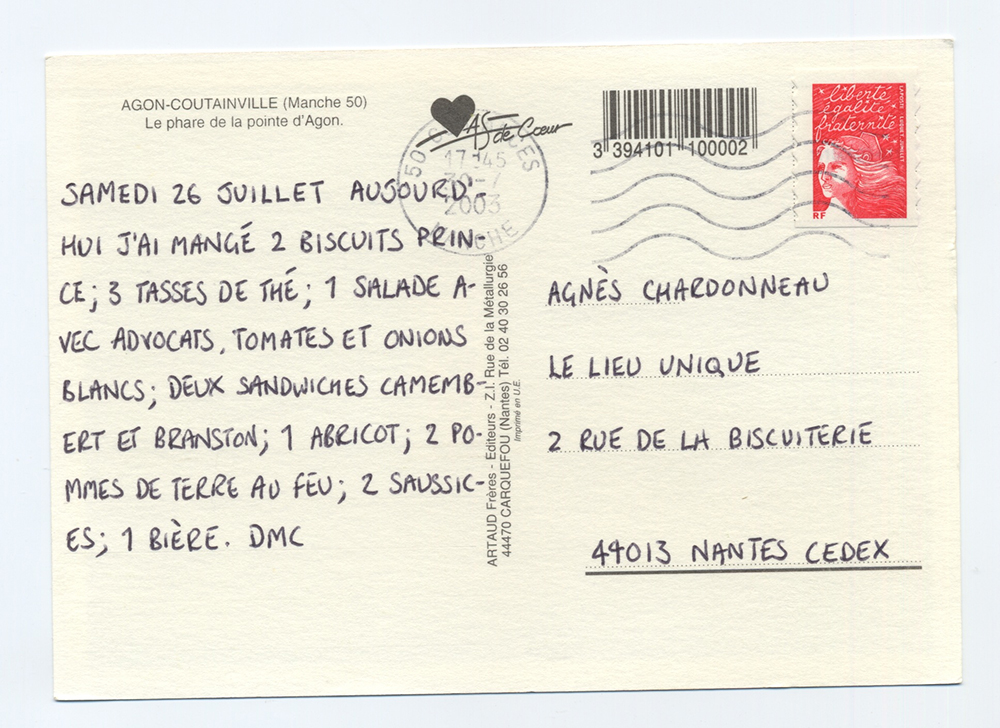 AGON-COUTAINVILLE (Manche 50)
Le phare de la pointe d'Agon.
AS de Cœur
17 45
30-7
2003
3 394101 100002
liberté
égalité
fraternité
RF
SAMEDI 26 JUILLET AUJOURD'-
HUI J'AI MANGÉ 2 BISCUITS PRIN-
CE; 3 TASSES DE THÉ; 1 SALADE A-
VEC ADVOCATS, TOMATES ET ONIONS
BLANCS; DEUX SANDWICHES CAMEMB-
ERT ET BRANSTON; 1 ABRICOT; 2 PO-
MMES DE TERRE AU FEU; 2 SAUSSIC-
ES; 1 BIÈRE. DMC
ARTAUD Frères - Editeurs - Z.I. Rue de la Métallurgie
44470 CARQUEFOU (Nantes) Tél. 02 40 30 26 56
Imprimé en U.E.
AGNÈS CHARDONNEAU
LE LIEU UNIQUE
2 RUE DE LA BISCUITERIE
44013 NANTES CEDEX